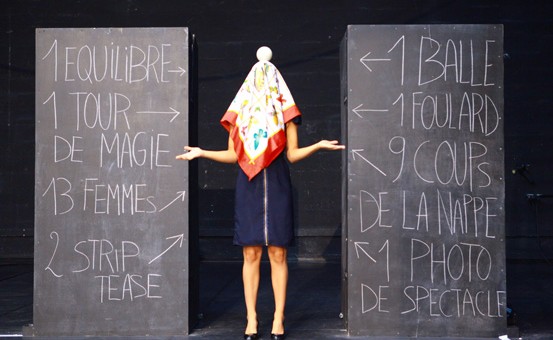 1 EQUILIBRE →
1 TOUR →
DE MAGIE
13 FEMMES ↗
2 STRIP ↗
TEASE
← 1 BALLE
← 1 FOULARD
↖ 9 COUPS
DE LA NAPPE
↖ 1 PHOTO
DE SPECTACLE